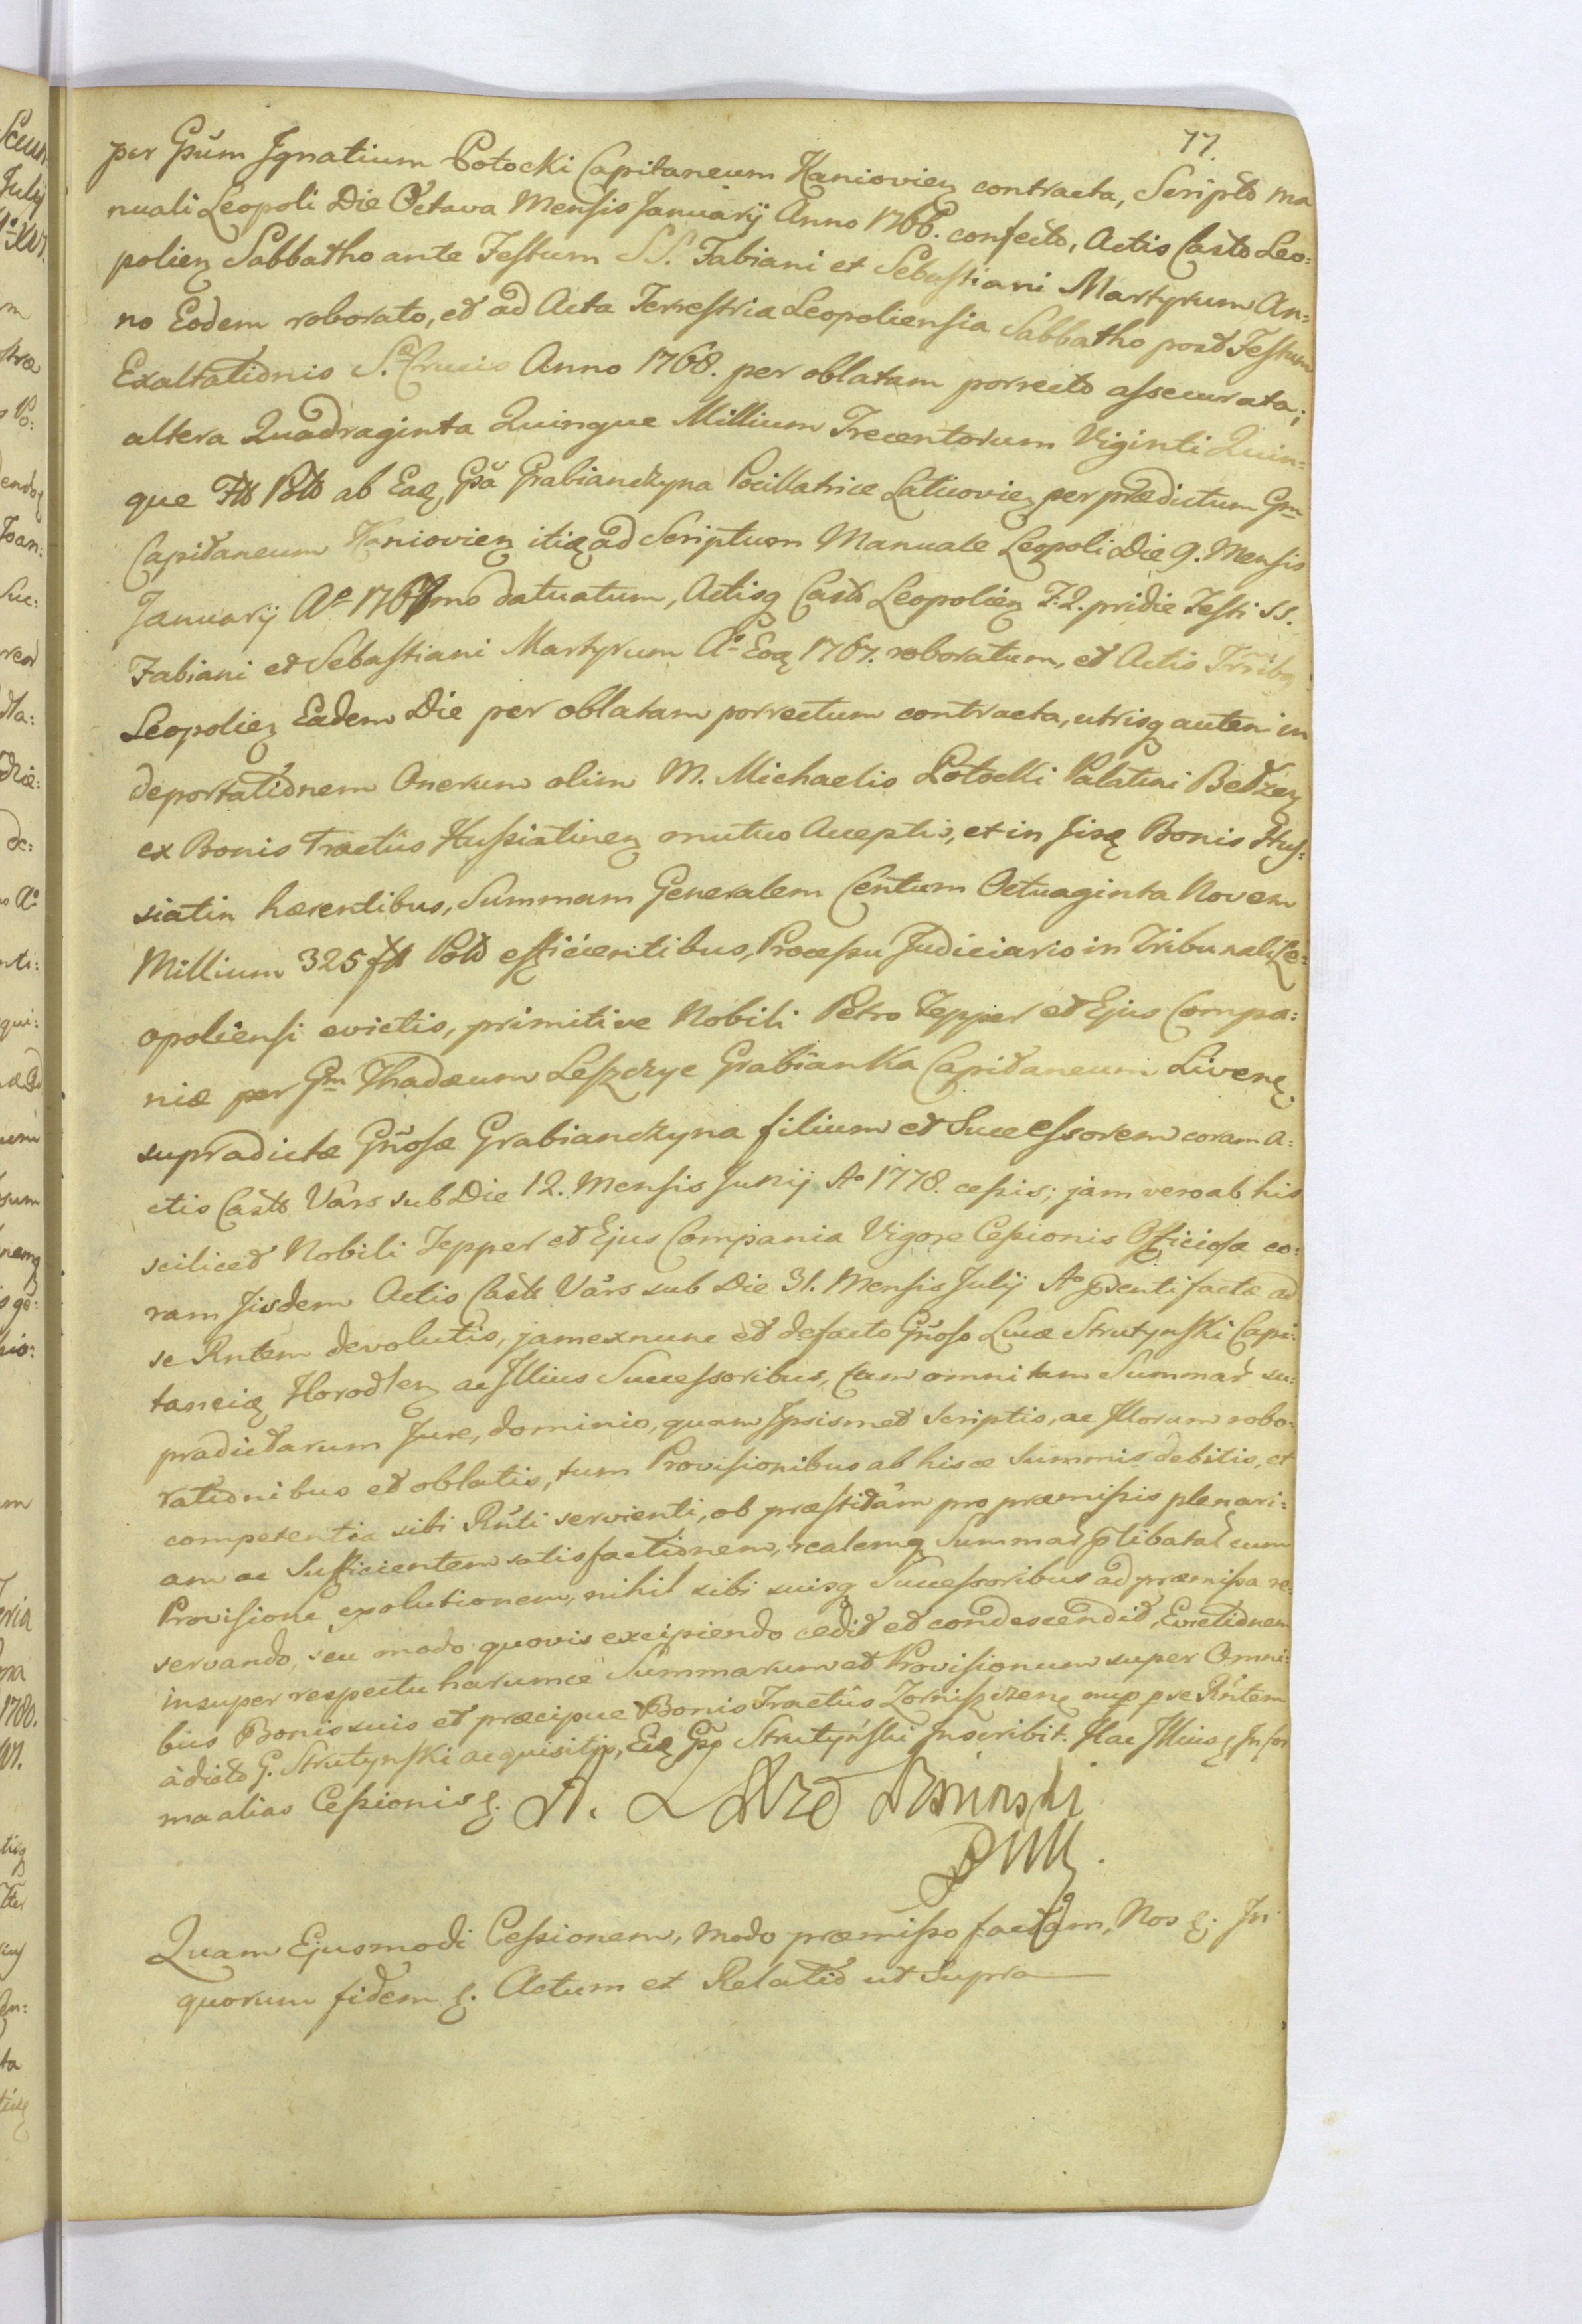 77.
per Gsum Ignatium Potocki Capitaneum Kaniovieȝ contracta, Scripto ma
nuali Leopoli Die Octava Mensis Januarij Anno 1766. confecto, Actis Casto Leo:
polieȝ Sabbatho ante Festum SS. Fabiani et Sebastiani Martyrum An:
no Eodem roborato, et ad Acta Terrestria Leopoliensia Sabbatho post Festum
Exaltationis S. Crucis Anno 1768. per oblatam porrecto assecurata;
altera Quadraginta Quinque Millium Trecentorum Viginti Quin:
que Flls Plls ab Eaȩ Gsa Grabianczyna Pocillatrice Laticovieȝ per prædictum Gm
Capitaneum Kaniovieȝ itiȩ ad Scriptum Manuale Leopoli Die 9. Mensis
Januarij Ao 1767mo datuatum, Actisq Casto Leopolieȝ F. 2. pridie Festi SS.
Fabiani et Sebastiani Martyrum Ao Eoȩ 1767. roboratum, et Actis Trribq
Leopolieȝ Eadem Die per oblatam porrectum contracta, utrisq autem in
deportationem Onerum olim M. Michaelis Potocki Palatini Bełzeȝ
ex Bonis Tractûs Hussiatineȝ mutuo Acceptis, et in Iisȩ Bonis Hus:
siatin hærentibus, Summam Generalem Centum Octuaginta Novem
Millium 325 fll Pols efficientibus, Processu Judiciario in Tribunali Le:
opoliensi evictis, primitive Nobili Petro Tepper et Ejus Compa:
niæ per Gm Thadæum Leszczyc Grabianka Capitaneum Livenȩ.
supradictæ Gnosæ Grabianczyna filium et Successorem coram A:
ctis Casto Vars sub Die 12. Mensis Junij Ao 1778. cessis; jam vero ab his
scilicet Nobili Tepper et Ejus Compania Vigore Cessionis Officiosæ co:
ram Iisdem Actis Casts Vars sub Die 31. Mensis Julij Ao pdenti factæ ad
se Rntem devolutis, jam ex nunc et de facto Gnoso Lucæ Strutynski Capi:
taneiȩ Horodleȝ ac Illius Successoribus, cum omni tam Summar su:
pradictarum Jure, dominio, quam Ipsismet Scriptis, ac Illorum robo:
rationibus et oblatis, tum Provisionibus ab hisce Summis debitis, et
competentia sibi Rnti servienti, ob præstitam pro præmissis plenari:
am ac Sufficientem satisfactionem, realemq Summar plibatar cum
Provisione exolutionem, nihil sibi suisq Successoribus ad præmissa re:
servando, seu modo quovis excipiendo cedit et condescendit, Evictionem
insuper respectu harumce Summarum et Provisionum super Omni:
bus Bonis suis et præcipue Bonis Tractûs Zorniszczenȩ nup pre Rntem
à dicto G. Strutynski acquisitis, Eiȩ Gsȩ Strutyński Inscribit. Hac Illius ȩ In for
ma alias Cessionis ȩ.
Quam Ejusmodi Cessionem, modo præmisso factam, Nos ȩ. In
quorum fidem ȩ. Actum et Relatio ut Supra